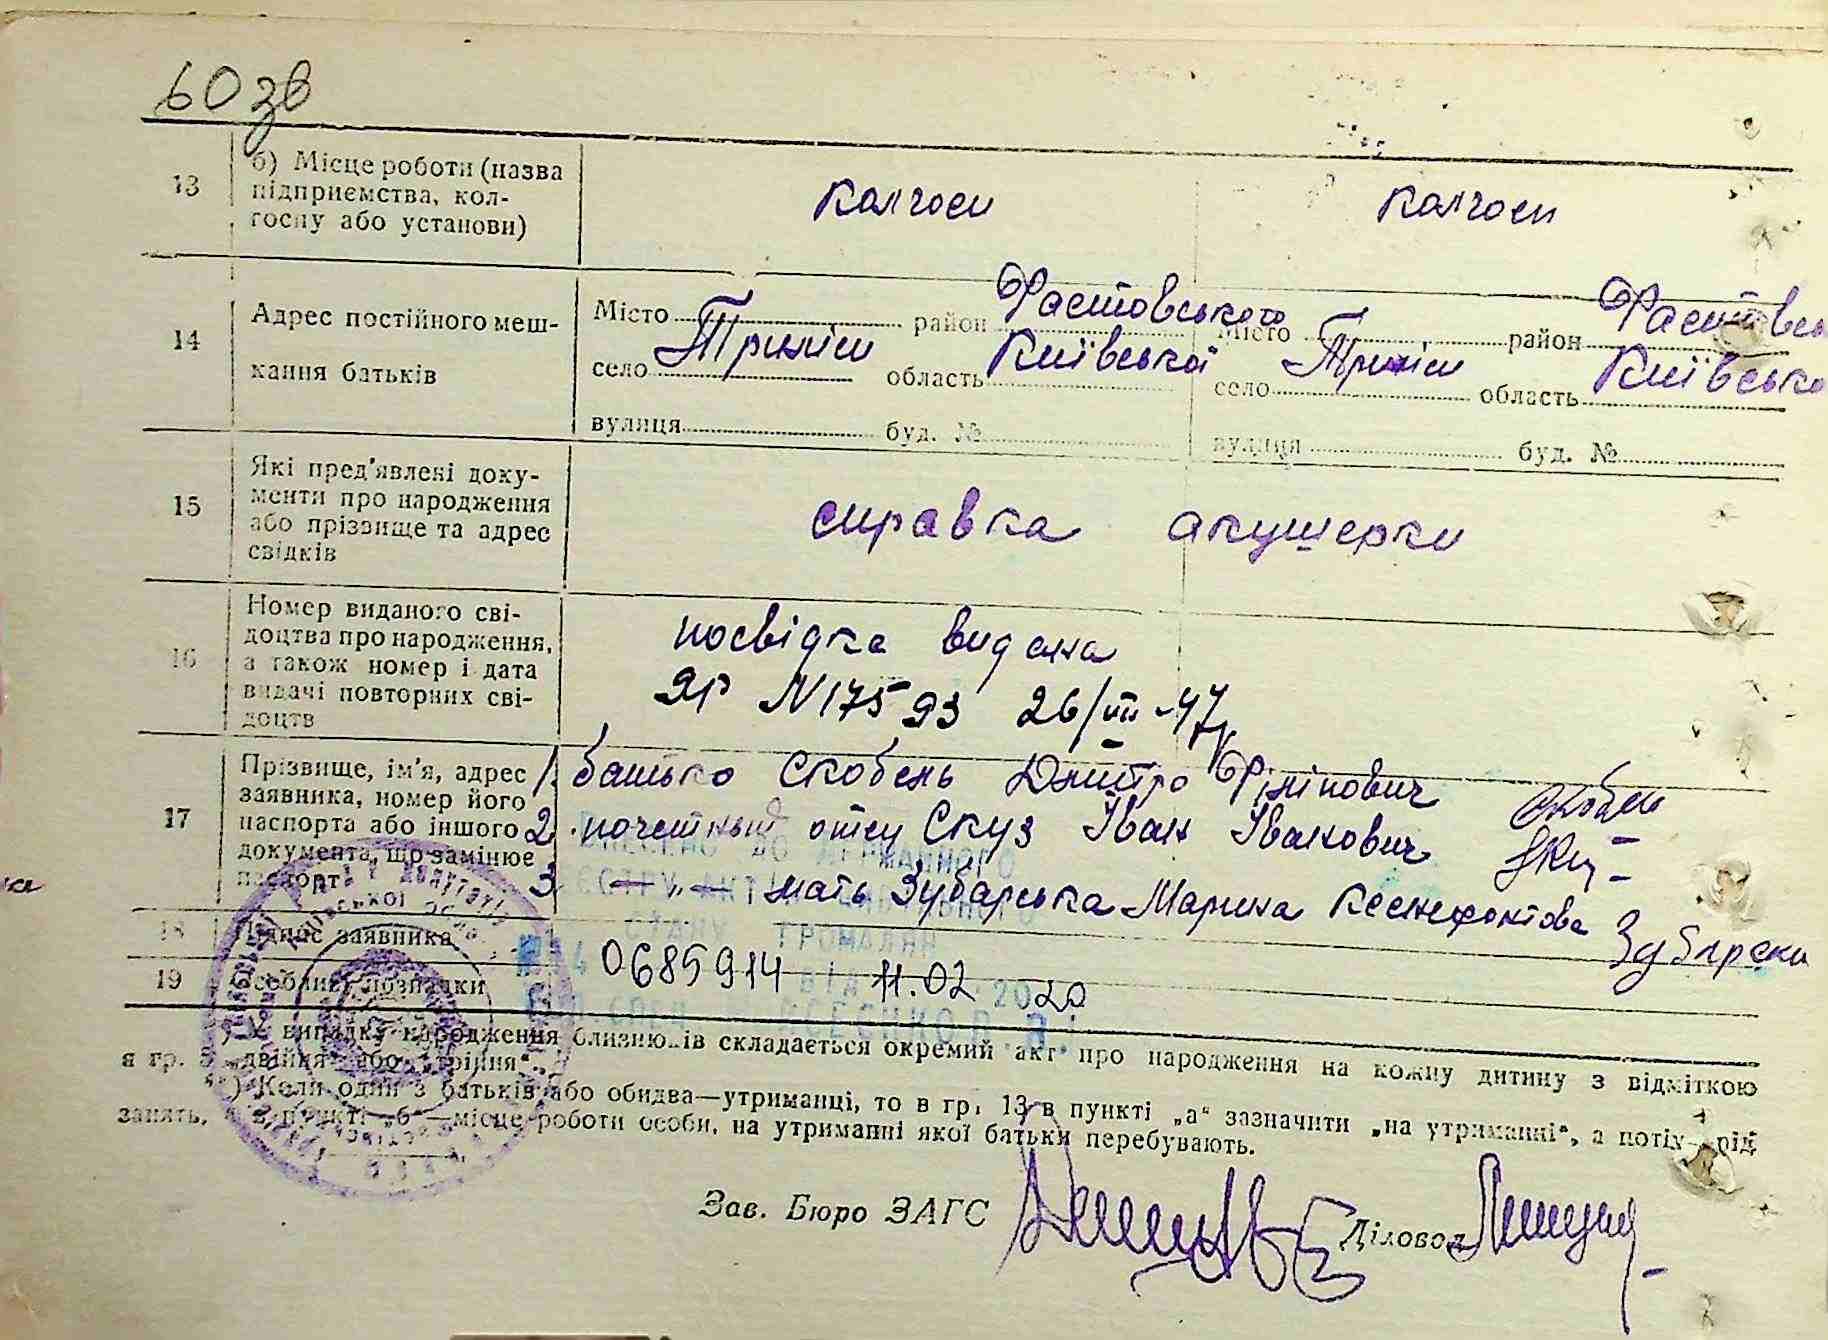 60 зв
13 б) Місце роботи (назва підприємства, колгоспу або установи) колгосп колгосп
14 Адрес постійного мешкання батьків
Місто район Фастовського Місто район Фастовсь
село Триліси область Київської село Триліси область Київсько
вулиця буд. № вулиця буд. №
15 Які пред'явлені документи про народження або прізвище та адрес свідків справка акушерки
16 Номер виданого свідоцтва про народження, а також номер і дата видачі повторних свідоцтв
посвідка видана
ЯР N 17593 26/VII-47
17 Прізвище, ім'я, адрес заявника, номер його паспорта або іншого документа, що замінює паспорт
1. батько Скобень Дмитро Філіпович
2. почетный отец Скуз Іван Іванович
3. — „ — мать Зубарська Марина Ксенефонтова
ВНЕСЕНО ДО ДЕРЖАВНОГО
РЕЄСТРУ АКТІВ ЦИВІЛЬНОГО
СТАНУ ГРОМАДЯН
18 Підпис заявника
0685914 ВІД 11.02 2020
19 Особливі познадки
*) У випадку народження близнюків складається окремий акт про народження на кожну дитину з відміткою
в гр. 5 „двійня“ або „трійня“.
**) Коли один з батьків або обидва—утриманці, то в гр. 13 в пункті „а“ зазначити „на утриманні“, а потім рід
занять, а в пункті „б“—місце роботи особи, на утриманні якої батьки перебувають.
Зав. Бюро ЗАГС Діловод